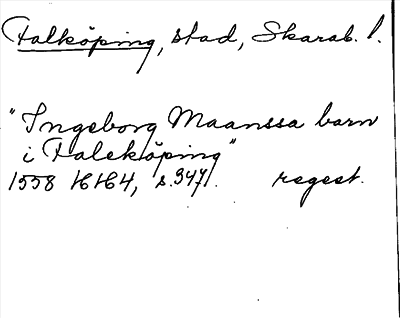 Falköping, stad, Skarab. l.
"Ingeborg Maanssa barn
i Faleköping"
1558 HH4, s. 347. regest.